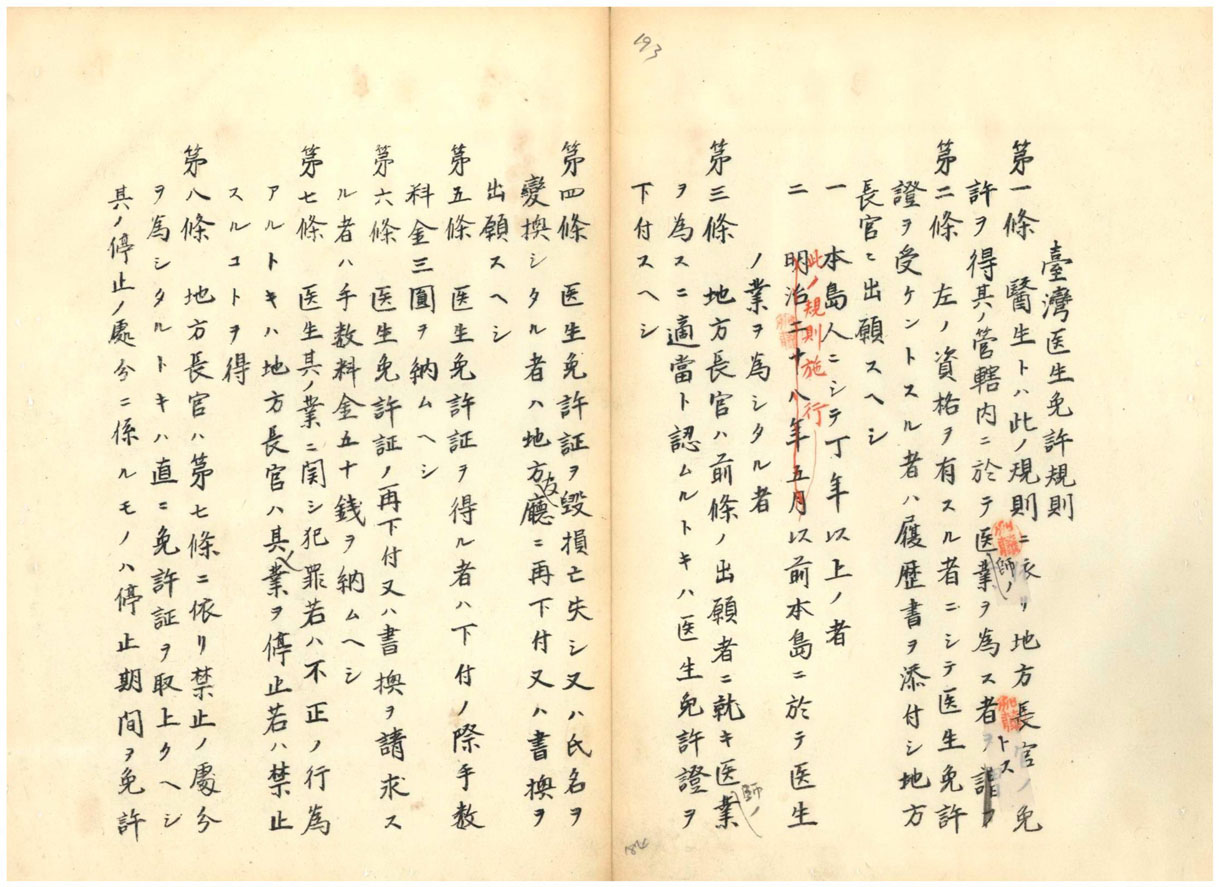 193
臺灣医生免許規則
第一條　醫生トハ此ノ規則ニ依リ地方長官ノ免
許ヲ得其ノ管轄内ニ於テ医業ヲ為ス者ヲ謂フ
師ノ
トス
第二條　左ノ資格ヲ有スル者ニシテ医生免許
證ヲ受ケントスル者ハ履歴書ヲ添付シ地方
長官ニ出願スヘシ
一　本島人ニシテ丁年以上ノ者
此ノ規則施行
二　明治二十八年五月以前本島ニ於テ医生
ノ業ヲ為シタル者
第三條　地方長官ハ前條ノ出願者ニ就キ医業
師ノ
ヲ為スニ適當ト認ムルトキハ医生免許證ヲ
下付スヘシ
第四條　医生免許証ヲ毀損亡失シ又ハ氏名ヲ
變換シタル者ハ地方廳ニ再下付又ハ書換ヲ
出願スヘシ
第五條　医生免許証ヲ得ル者ハ下付ノ際手数
料金三圓ヲ納ムヘシ
第六條　医生免許証ノ再下付又ハ書換ヲ請求ス
ル者ハ手数料金五十銭ヲ納ムヘシ
第七條　医生其ノ業ニ関シ犯罪若ハ不正ノ行為
アルトキハ地方長官ハ其業ヲ停止若ハ禁止
スルコトヲ得
第八條　地方長官ハ第七條ニ依リ禁止ノ處分
ヲ為シタルトキハ直ニ免許証ヲ取上クヘシ
其ノ停止ノ處分ニ係ルモノハ停止期間ヲ免許